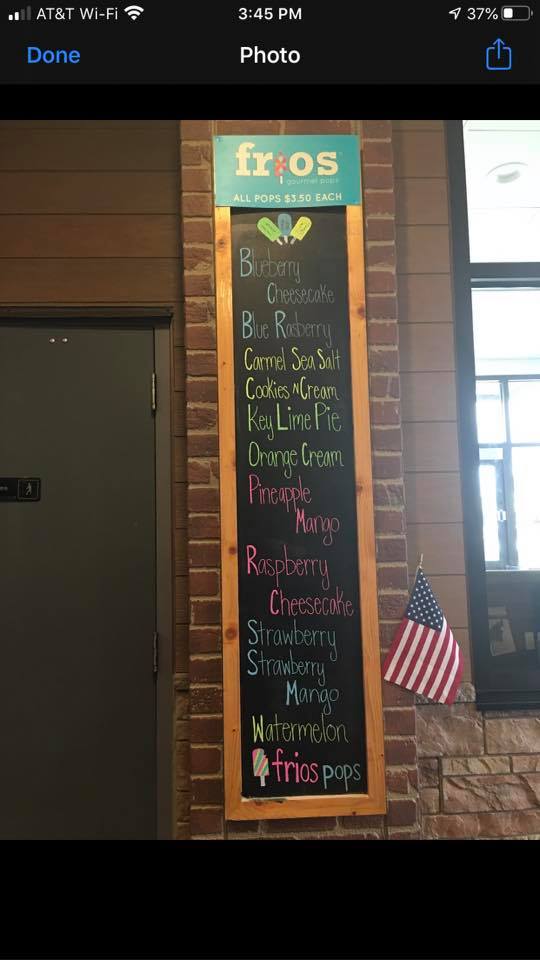 AT&T Wi-Fi 3:45 PM 37%
Done Photo
frios
gourmet pops
ALL POPS $3.50 EACH
Blueberry
Cheesecake
Blue Rasberry
Carmel Sea Salt
Cookies N Cream
Key Lime Pie
Orange Cream
Pineapple
Mango
Raspberry
Cheesecake
Strawberry
Strawberry
Mango
Watermelon
frios pops